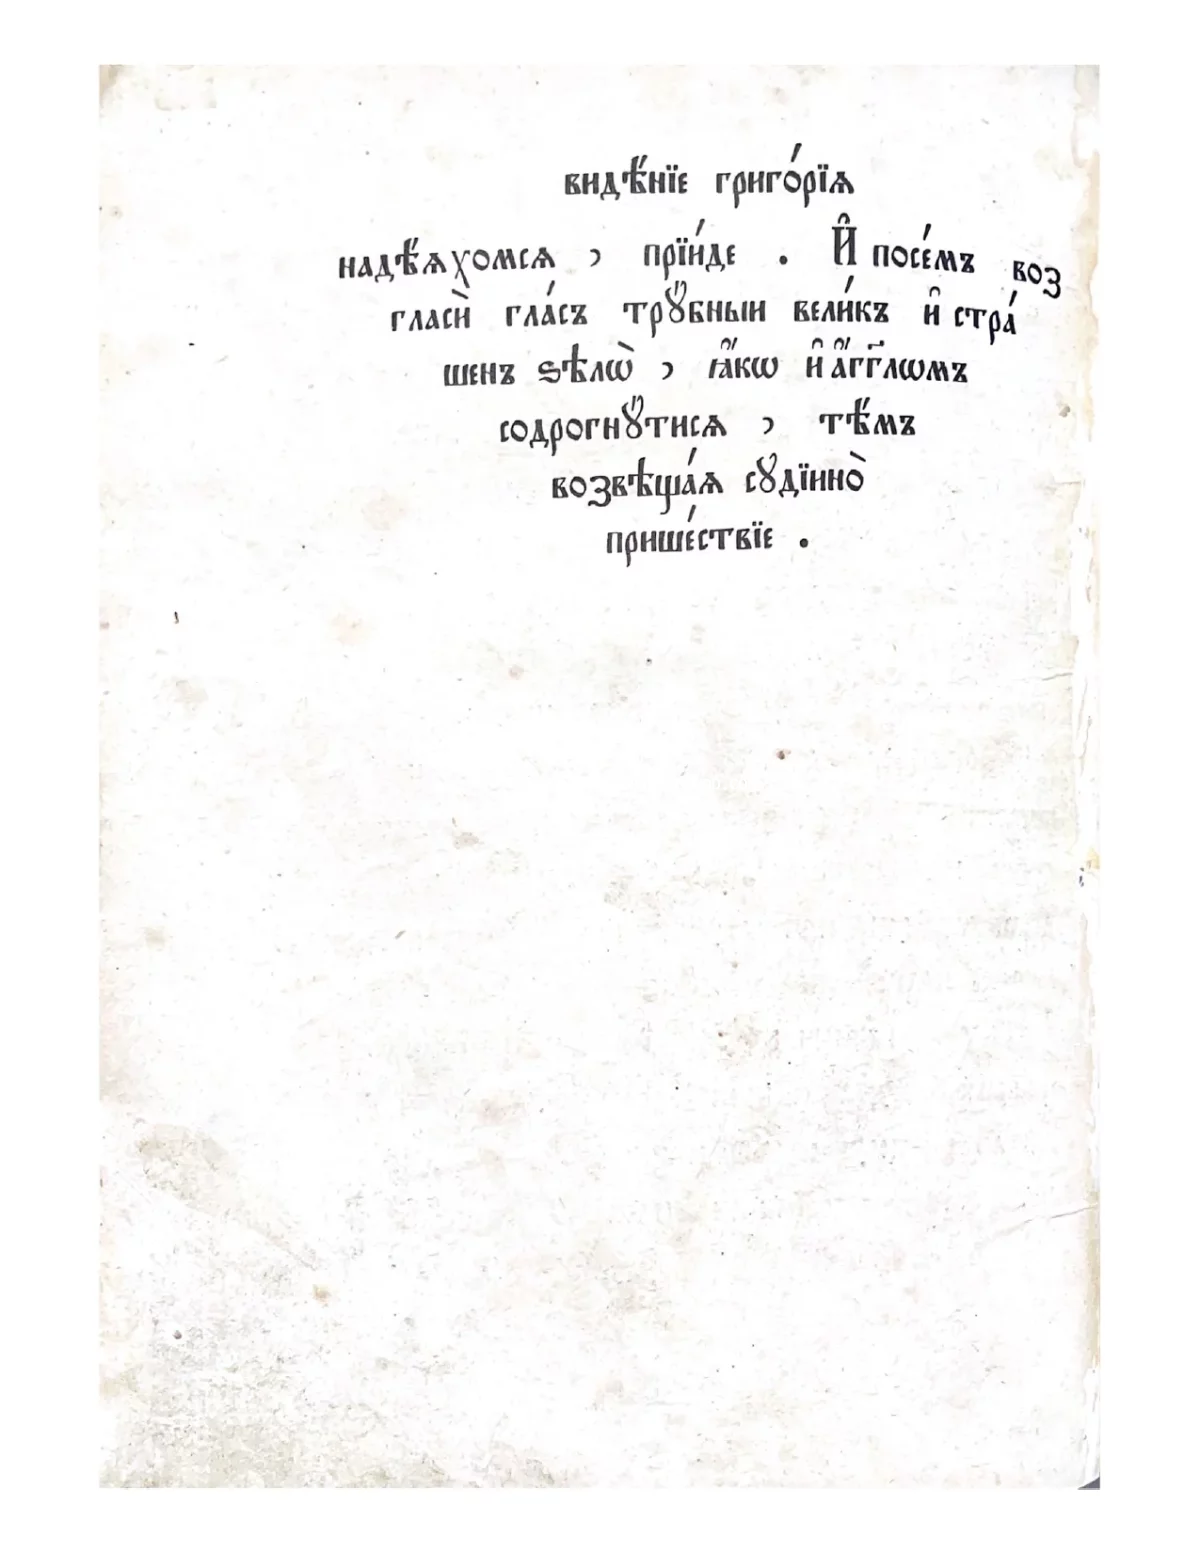 видѣ́нїе григо́рїѧ
надѣ́ѧхомсѧ , прїи́де . И҆ посе́мъ воз
гласѝ гла́съ трꙋ́бныи вели́къ и҆ стра́
шенъ ѕѣлѡ̀ , ꙗ҆́кѡ и҆ а҆́гг҃лѡмъ
содрогнꙋ́тисѧ , тѣ́мъ
возвѣща́ѧ сꙋдїинно̀
прише́ствїе .